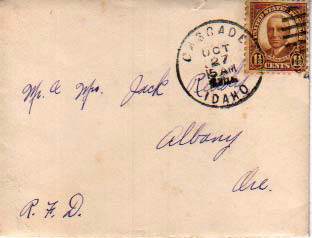 CASCADE
OCT
27
AM
IDAHO
UNITED STATES
1½ CENTS 1½
Mr. & Mrs. Jack
Albany
Ore.
R. F. D.